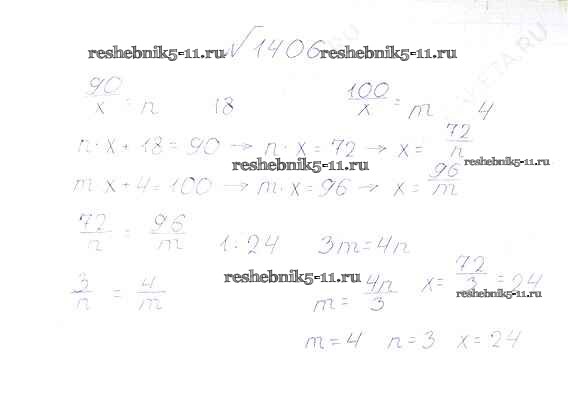 √1406
reshebnik5-11.ru reshebnik5-11.ru
90/x = n 18 100/x = m 4
n·x + 18 = 90 → n·x = 72 → x = 72/n
reshebnik5-11.ru reshebnik5-11.ru
m x + 4 = 100 → m·x = 96 → x = 96/m
72/n = 96/m 1·24 3m = 4n
3/n = 4/m reshebnik5-11.ru m = 4n/3 x = 72/3 = 24
reshebnik5-11.ru
m = 4 n = 3 x = 24